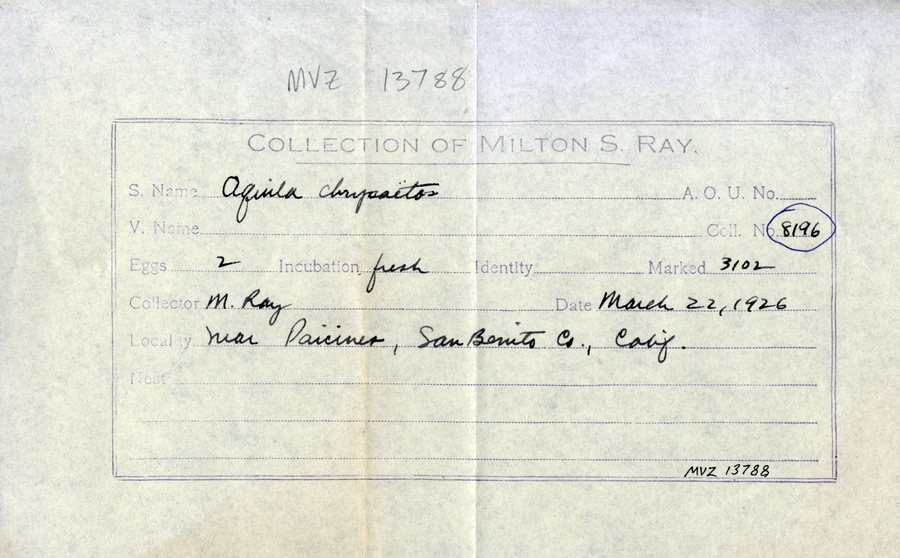 MVZ 13788
COLLECTION OF MILTON S. RAY.
S. Name Aquila chrysaëtos A. O. U. No.
V. Name Coll. No. 8196
Eggs 2 Incubation fresh Identity Marked 3102
Collector M. Ray Date March 22, 1926
Locality. near Paicines, San Benito Co., Calif.
Nest
MVZ 13788